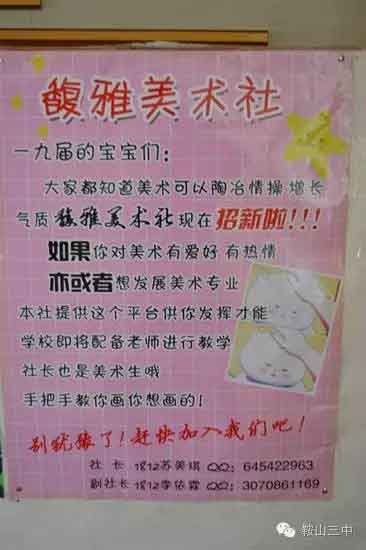 馥雅美术社
一九届的宝宝们：
大家都知道美术可以陶冶情操增长
气质馥雅美术社现在招新啦!!!
如果你对美术有爱好 有热情
亦或者想发展美术专业
本社提供这个平台供你发挥才能
学校即将配备老师进行教学
社长也是美术生哦
手把手教你画你想画的!
别犹豫了!赶快加入我们吧!
社 长 1812苏美琪 QQ: 645422963
副社长 1812李依霖 QQ: 3070861169
鞍山三中